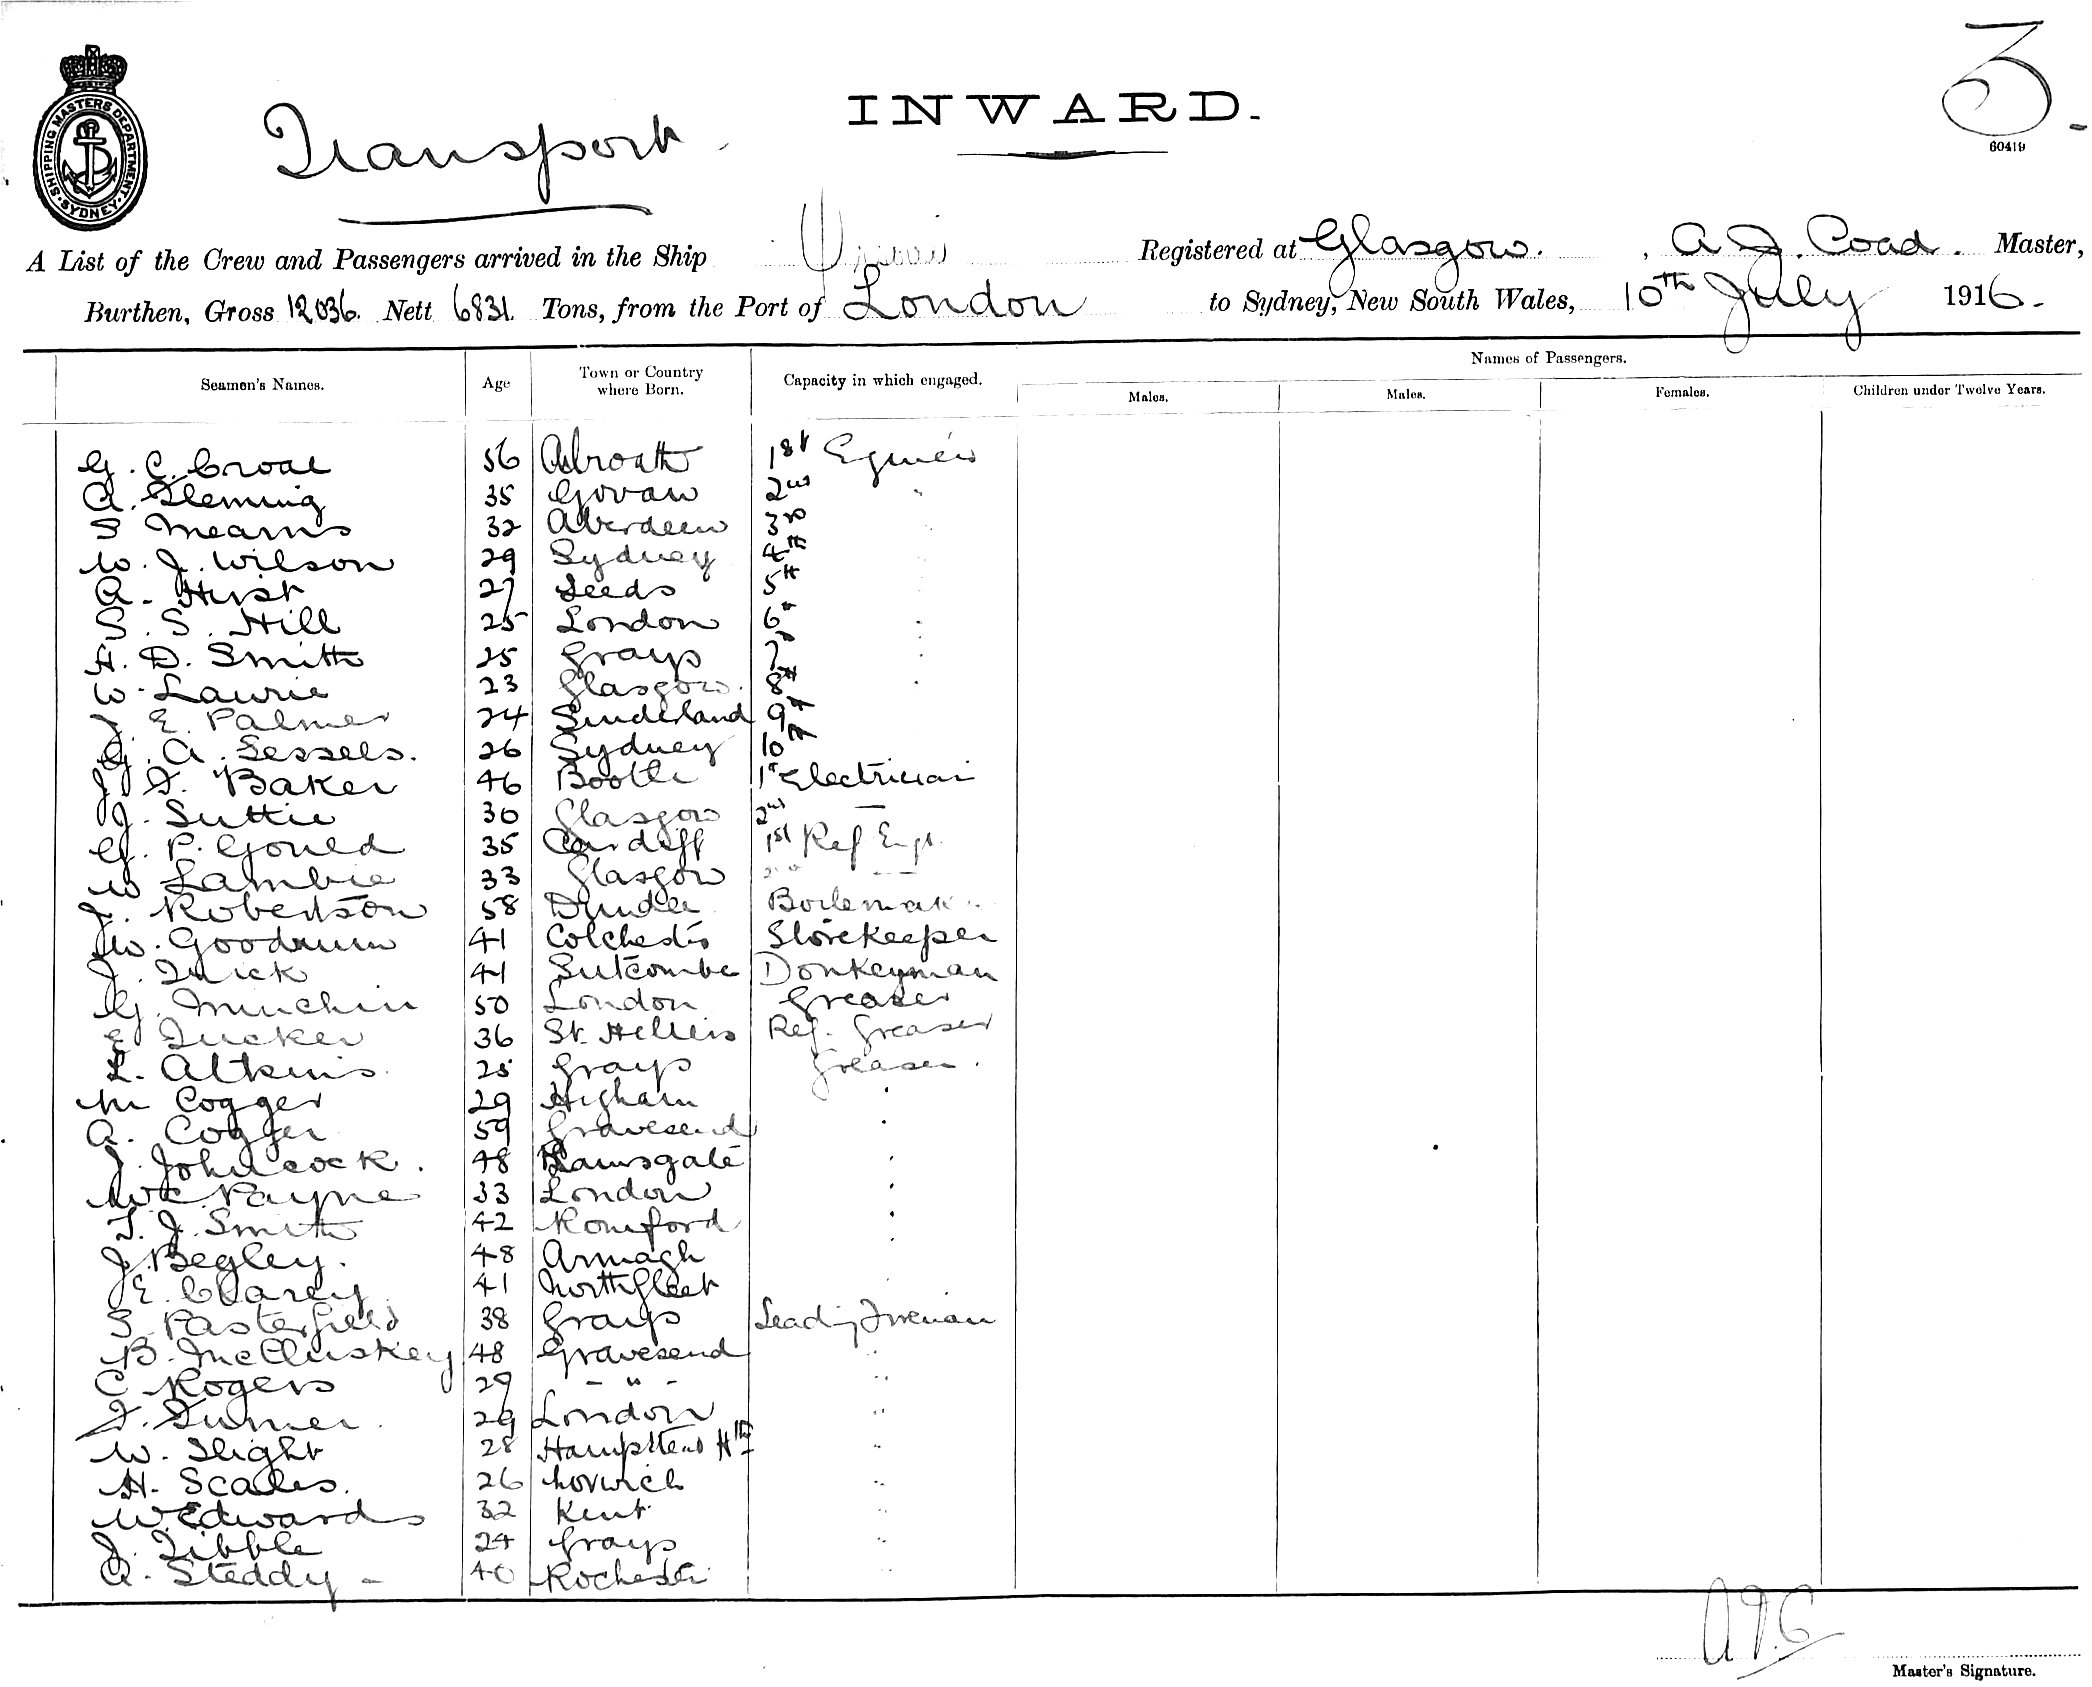 3.
INWARD.
SHIPPING MASTERS DEPARTMENT
SYDNEY
Transport
60419
A List of the Crew and Passengers arrived in the Ship Registered at Glasgow. , A J. Coad. Master,
Burthen, Gross 12036. Nett 6831. Tons, from the Port of London to Sydney, New South Wales, 10th July 1916.
Names of Passengers.
Seamen's Names. Age Town or Country where Born. Capacity in which engaged. Males. Males. Females. Children under Twelve Years.
G. C. Croal 56 Abroath 1st
A. Fleming 35 Govan 2nd "
S Mearns 32 Aberdeen 3rd "
W. J. Wilson 29 Sydney 4th
A. Hirst 27 Leeds 5th
S. S. Hill 25 London 6th "
H. D. Smith 25 Grays 7th "
W. Laurie 23 Glasgow. 8th "
J. E. Palmer 24 Sunderland 9th
G. A. Lessels. 26 Sydney 10th
J F. Baker 46 Bootle 1st Electrician
J. Suttie 30 Glasgow 2nd —
G. P. Gould 35 Cardiff 1st Ref Engr.
W Lambie 33 Glasgow 2nd —
J. Robertson 58 Dundee Boilermaker
W. Goodrum 41 Colchester Storekeeper
J. Quick 41 Sutcombe Donkeyman
G. Minchin 50 London Greaser
E Tucker 36 St. Helliers Ref. Greaser
L. Atkins 25 Grays Greaser.
M Cogger 29 Higham "
A. Cogger 59 Gravesend "
J. Johncock. 48 Ramsgate "
W C Payne 33 London "
T. J. Smith 42 Romford "
J. Begley. 48 Armagh "
E. Clarey 41 Northfleet "
S. Pasterfield 38 Grays Leading Fireman
B. McCluskey 48 Gravesend "
C Rogers 29 - " - "
F. Turner 29 London "
W. Slight 28 Hampstead Hth "
H. Scales. 26 Norwich "
W Edwards 32 Kent "
J. Tibble 24 Grays "
A. Steddy - 40 Rochester "
Master's Signature.